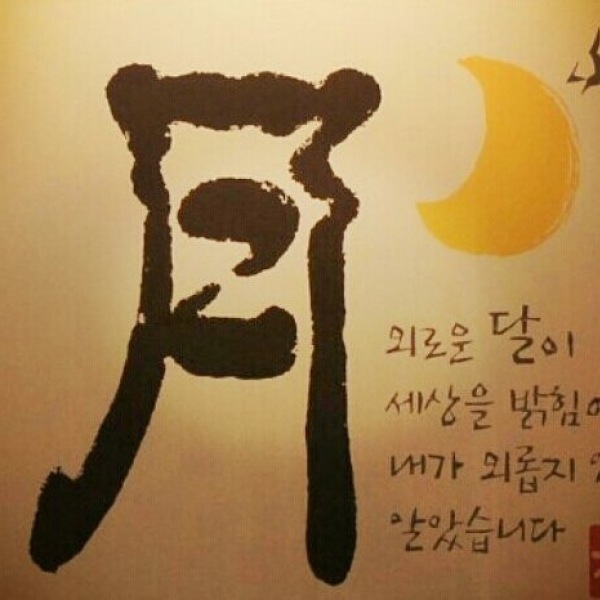 月
외로운 달이
세상을 밝힘
내가 외롭지
알았습니다